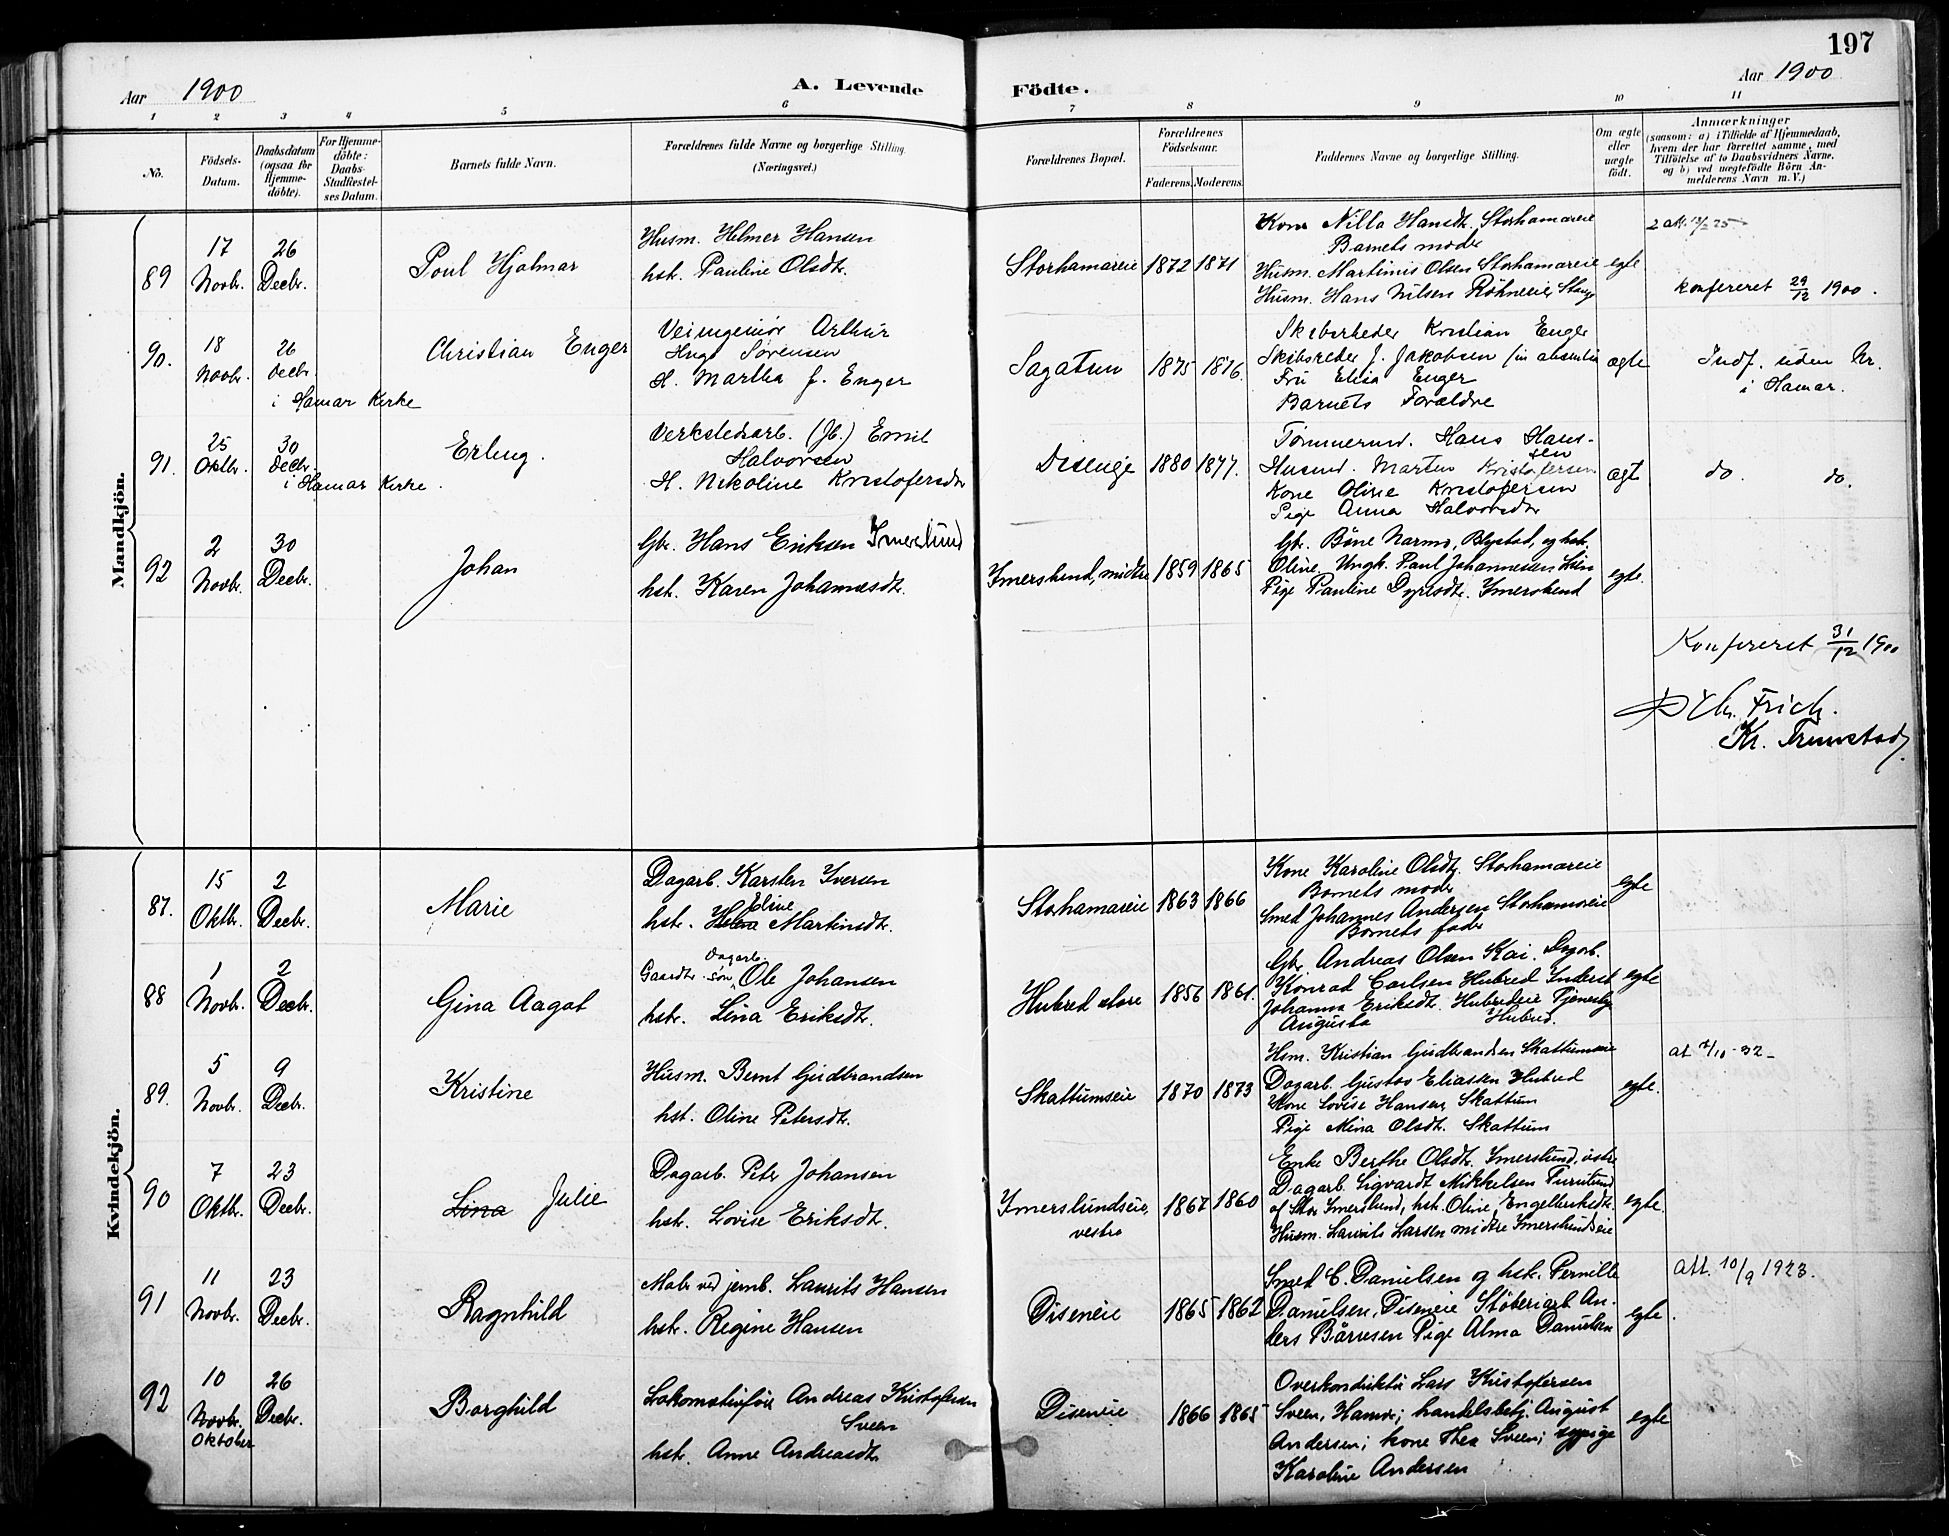 197
Aar 1900
A. Levende Födte.
Aar 1900
1 2 3 4 5 6 7 8 9 10 11
No.
Födsels-
Datum.
Daabsdatum
(ogsaa for
Hjemme-
döbte).
For Hjemme-
döbte:
Daabs-
Stadfæstel-
ses Datum.
Barnets fulde Navn.
Forældrenes fulde Navne og borgerlige Stilling.
(Næringsvei.)
Forældrenes Bopæl.
Forældrenes
Födselsaar.
Faderens. Moderens.
Faddernes Navne og borgerlige Stilling.
Om ægte
eller
uægte
födt.
Anmærkninger
(saasom: a) i Tilfælde af Hjemmedaab,
hvem der har forrettet samme, med
Tilföielse af to Daabsvidners Navne,
og b) ved uægtefödte Börn An-
melderens Navn m. V.)
Mandkjön.
89
17
Novbr.
26
Decbr.
Poul Hjalmar
Husm. Helmer Hansen
hst. Pauline Olsdt.
Storhamareie 1872 1871
Kone Nilla Hansdt. Storhamareie
Barnets moder
Husm. Martinus Olsen Storhamareie
Husm. Hans Nilsen Röhneeie, Stange
egte
konfereret 29/12 1900.
90.
18
Novbr.
26
Decbr.
i Hamar Kirke
Christian Enger
Veiingeniör Arthur
Hugo Sörensen
H. Martha f. Enger
Sagatun 1875 1876.
Skibsreder Kristian Enger
Skibsreder J. Jakobsen (in absentia
Fru Elisa Enger
Barnets Forældre
ægte
Indf. uden Nr.
i Hamar.
91.
25
Oktbr.
30
Decbr.
i Hamar Kirke.
Erling.
Verkstedsarb. (Jb.) Emil
Halvorsen
H. Nikoline Kristofersdr
1880 1877.
Tömmermd. Hans Han-
sen
Husmd. Martin Kristofersen
Kone Oline Kristofersen
Pige Anna Halvorsdr
ægt
do. do.
92
2
Novbr.
30
Decbr.
Johan
Gbr. Hans Eriksen Imerslund
hst. Karen Johannesdt.
Imerslund, midtre 1859 1865
Gbr. Böne Narmo, Blystad, og hst.
Oline. Ungk. Paul Johannesen Lien
Pige Pauline Imerslund
egte.
Konfereret 31/12 1900
Chr. Frich.
Kvindekjön.
87.
15
Oktbr.
2
Decbr.
Marie
Dagarb. Karsten Iversen
Edine
hst. Helena Martinsdt.
Storhamareie 1863 1866
Kone Karoline Olsdt. Storhamareie
Barnets moder
Smed Johannes Andersen Storhamareie
Barnets fader
egte
88
1
Novbr.
2
Decbr.
Gina Aagot
Dagarb.
Gaardbr. sön Ole Johansen
hstr. Lina Eriksdt.
Hubred store 1856 1861.
Gbr. Andreas Olsen Kai. Dagarb.
Konrad Carlsen Hubred Inderst
Johanna Eriksdt. Hubredeie Tjenestp.
Augusta Hubred.
egte
89.
5
Novbr.
9
Decbr.
Kristine
Husm. Bernt Gudbrandsen
hst. Oline Petersdt.
Skattumseie 1870 1873
Hsm. Kristian Gudbrandsen Skattumseie
Dagarb. Gustav Eliassen Hubred
Kone Lovise Hansen, Skattum
Pige Mina Olsdt. Skattum
egte.
at 7/11-32-
90
7
Oktbr.
23
Decbr.
Lina Julie
Dagarb. Peter Johansen
hst. Lovise Eriksdt.
Imerslundseie,
vestre
1867 1860
Enke Berthe Olsdt. Imerslund, vestre
Dagarb. Sigvardt Mikkelsen Furulund
af Stor Imerslund, hst. Oline Engelbrektsdt.
Husm. Laurits Larsen midtre Imerslundseie
egte.
91
11
Novbr.
23
Decbr.
Ragnhild
Maler ved jernb. Laurits Hansen
hst. Regine Hansen
Diseneie 1865 1862
Smed C. Danielsen og hst. Pernille
Danielsen, Diseneie Stöberiarb. An-
ders Pige Alma Danielsen
egte.
Att. 10/9 1923.
92
10
Novbr.
Oktober
26
Decbr.
Borghild
Lokomotivför. Andreas Kristofersen
Sveen
hst. Anne Andreasdt.
Diseneie 1866 1865
Overkonduktör Lars Kristofersen
Sveen, Hamar; handelsbetj. August
Andersen; kone Thea Sveen; sypige
Karoline Andersen
egte